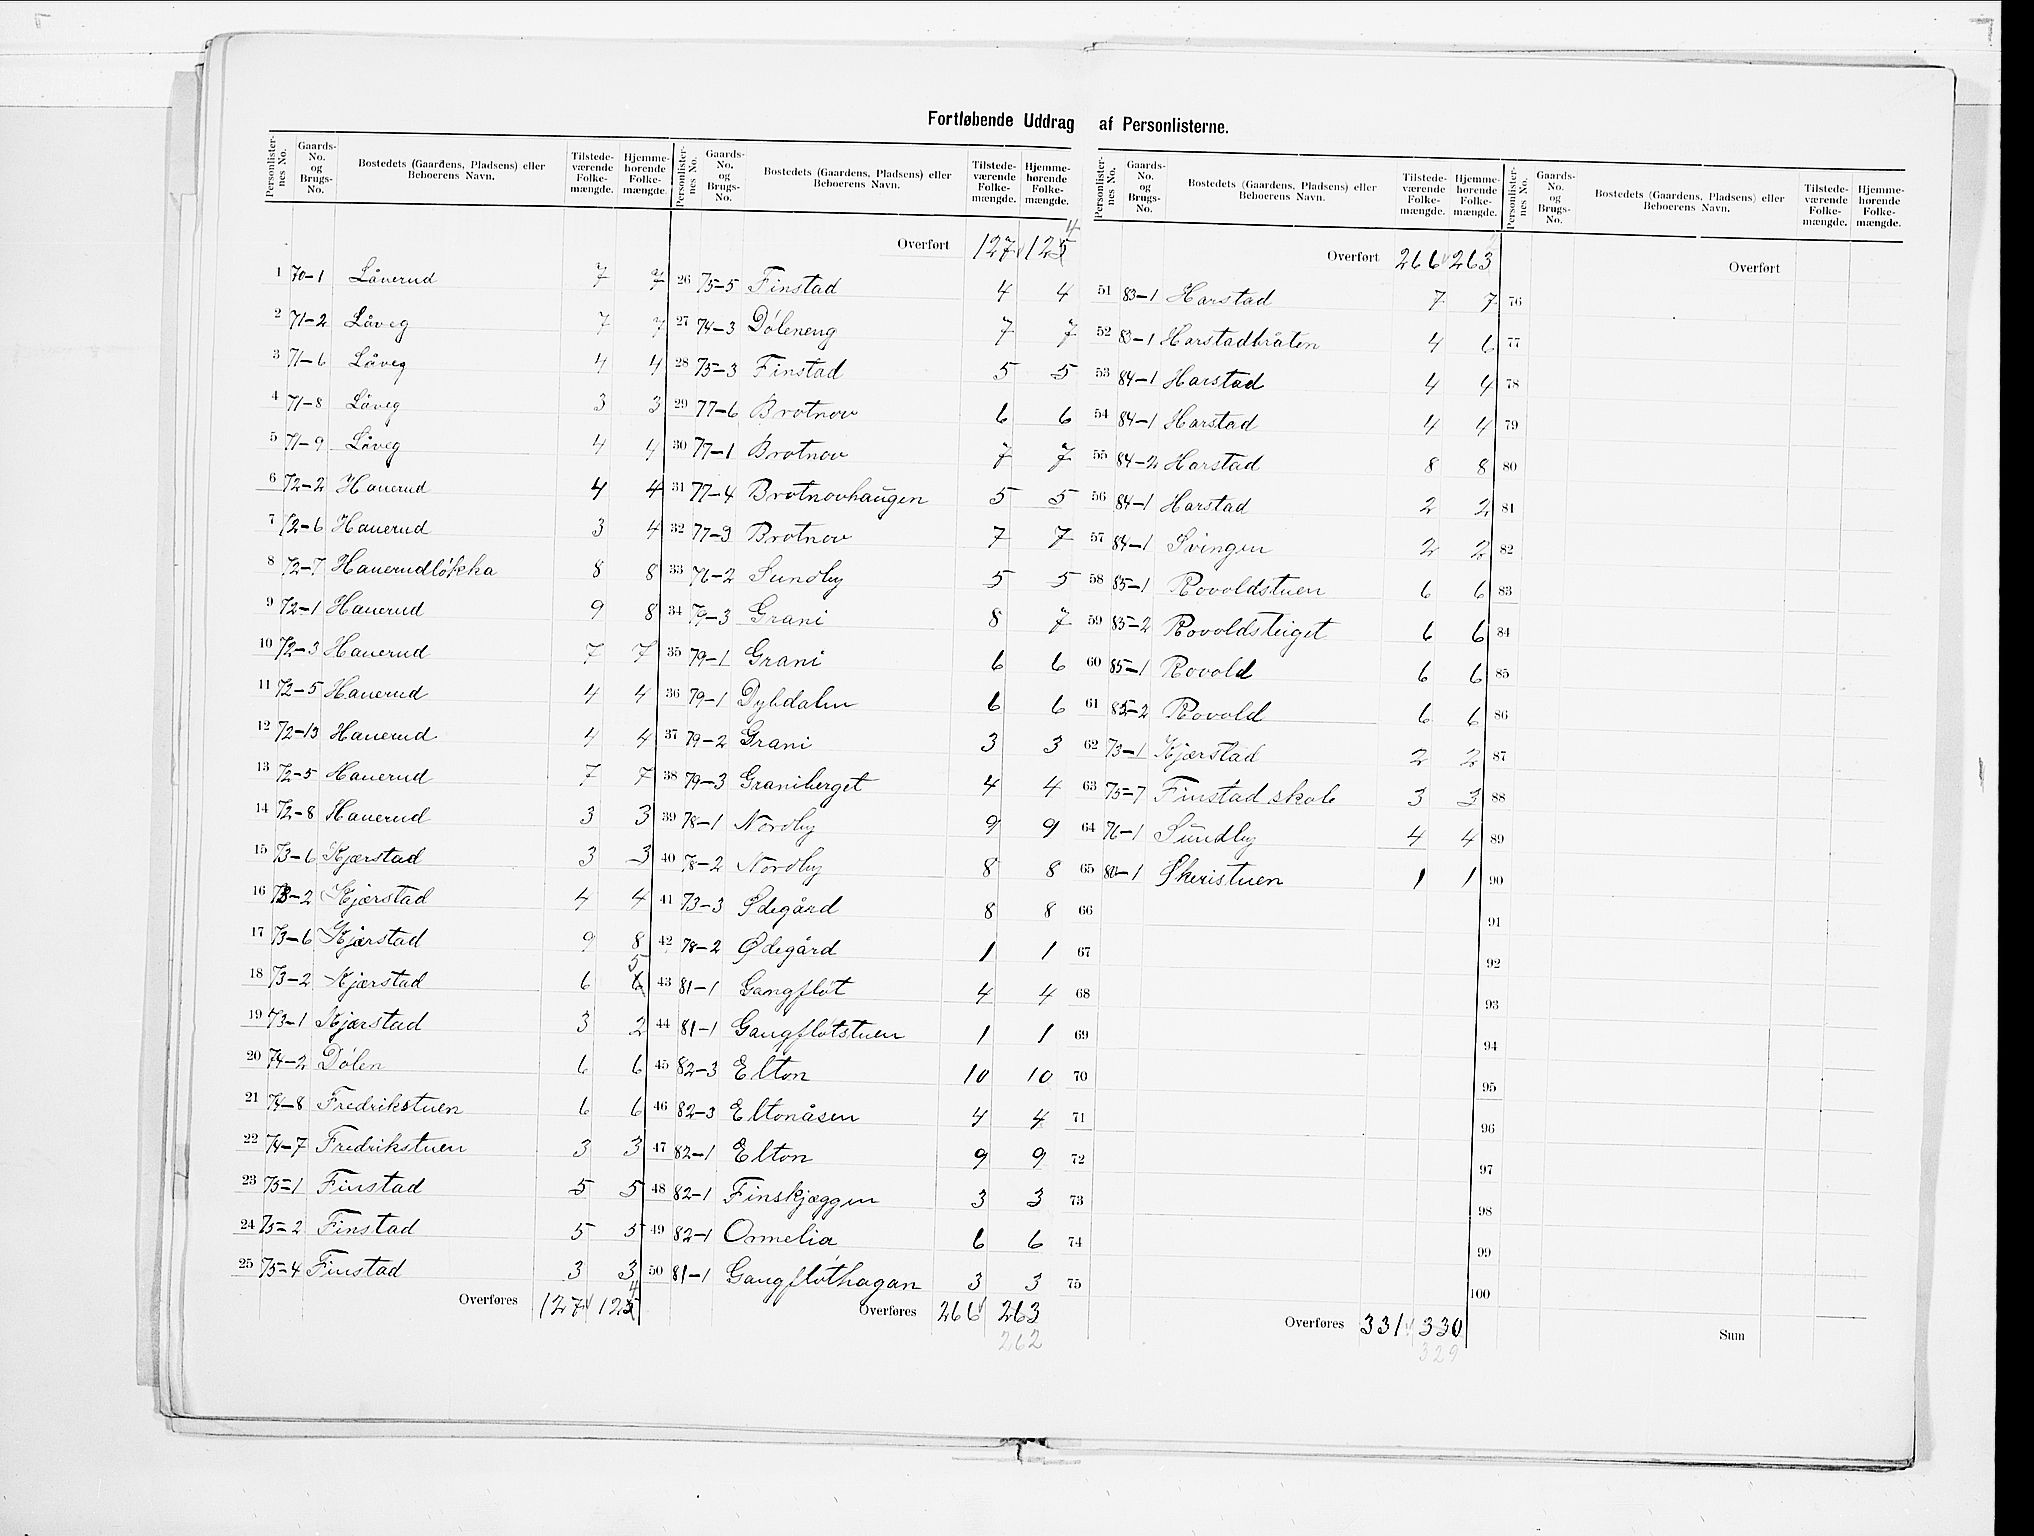 Fortløbende Uddrag af Personlisterne.
Personlister-nes No. | Gaards-No. og Brugs-No. | Bostedets (Gaardens, Pladsens) eller Beboerens Navn. | Tilstede-værende Folke-mængde. | Hjemme-hørende Folke-mængde.
1 70-1 Låverud 7 7
2 71-2 Låveg 7 7
3 71-6 Låveg 4 4
4 71-8 Låveg 3 3
5 71-9 Låveg 4 4
6 72-2 Hauerud 4 4
7 72-6 Hauerud 3 4
8 72-7 Hauerudløkka 8 8
9 72-1 Hauerud 9 8
10 72-3 Hauerud 7 7
11 72-5 Hauerud 4 4
12 72-13 Hauerud 4 4
13 72-5 Hauerud 7 7
14 72-8 Hauerud 3 3
15 73-6 Kjærstad 3 3
16 73-2 Kjærstad 4 4
17 73-6 Kjærstad 9 8
18 73-2 Kjærstad 6 6 5
19 73-1 Kjærstad 3 2
20 74-2 Dølen 6 6
21 74-8 Fredrikstuen 6 6
22 74-7 Fredrikstuen 3 3
23 75-1 Finstad 5 5
24 75-2 Finstad 5 5
25 75-4 Finstad 3 3
Overføres 127 125 4
Personlister-nes No. | Gaards-No. og Brugs-No. | Bostedets (Gaardens, Pladsens) eller Beboerens Navn. | Tilstede-værende Folke-mængde. | Hjemme-hørende Folke-mængde.
Overført 127 125 4
26 75-5 Finstad 4 4
27 74-3 Døleneng 7 7
28 75-3 Finstad 5 5
29 77-6 Brotnov 6 6
30 77-1 Brotnov 7 7
31 77-4 Brotnovhaugen 5 5
32 77-3 Brotnov 7 7
33 76-2 Sundby 5 5
34 79-3 Grani 8 7
35 79-1 Grani 6 6
36 79-1 Dybdalen 6 6
37 79-2 Grani 3 3
38 79-3 Graniberget 4 4
39 78-1 Nordby 9 9
40 78-2 Nordby 8 8
41 73-3 Ødegård 8 8
42 78-2 Ødegård 1 1
43 81-1 Gangfløt 4 4
44 81-1 Gangfløtstuen 1 1
45 82-3 Elton 10 10
46 82-3 Eltonåsen 4 4
47 82-1 Elton 9 9
48 82-1 Finskjæggen 3 3
49 82-1 Ormelia 6 6
50 81-1 Gangfløthagan 3 3
Overføres 266 263
262
Personlister-nes No. | Gaards-No. og Brugs-No. | Bostedets (Gaardens, Pladsens) eller Beboerens Navn. | Tilstede-værende Folke-mængde. | Hjemme-hørende Folke-mængde.
Overført 266 263 2
51 83-1 Harstad 7 7
52 83-1 Harstadbråten 4 6
53 84-1 Harstad 4 4
54 84-1 Harstad 4 4
55 84-2 Harstad 8 8
56 84-1 Harstad 2 2
57 84-1 Svingen 2 2
58 85-1 Rovoldstuen 6 6
59 85-2 Rovoldsteiget 6 6
60 85-1 Rovold 6 6
61 85-2 Rovold 6 6
62 73-1 Kjærstad 2 2
63 75-7 Finstad skole 3 3
64 76-1 Sundby 4 4
65 80-1 Skeristuen 1 1
66
67
68
69
70
71
72
73
74
75
Overføres 331 330
329
Personlister-nes No. | Gaards-No. og Brugs-No. | Bostedets (Gaardens, Pladsens) eller Beboerens Navn. | Tilstede-værende Folke-mængde. | Hjemme-hørende Folke-mængde.
Overført
76
77
78
79
80
81
82
83
84
85
86
87
88
89
90
91
92
93
94
95
96
97
98
99
100
Sum